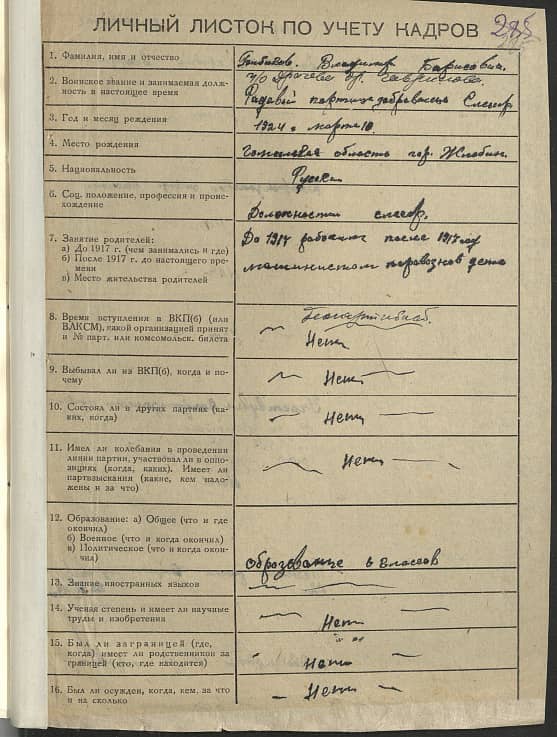 ЛИЧНЫЙ ЛИСТОК ПО УЧЕТУ КАДРОВ
1. Фамилия, имя и отчество
Владимир Борисович.
2. Воинское звание и занимаемая долж-
ность в настоящее время
Рядовой
3. Год и месяц рождения
1924 г. марта 10.
4. Место рождения
Гомельская область гор. Жлобин.
5. Национальность
Русский
6. Соц. положение, профессия и проис-
хождение
слесарь.
7. Занятие родителей:
а) До 1917 г. (чем занимались и где)
б) После 1917 г. до настоящего вре-
мени
в) Место жительства родителей
До 1917 рабочий после 1917 году
машинистом паровозное депо
8. Время вступления в ВКП(б) (или
ВЛКСМ), какой организацией принят
и № парт. или комсомольск. билета
Нет
9. Выбывал ли из ВКП(б), когда и по-
чему
Нет
10. Состоял ли в других партиях (ка-
ких, когда)
Нет
11. Имел ли колебания в проведении
линии партии, участвовал ли в оппо-
зициях (когда, каких). Имеет ли
партвзыскания (какие, кем нало-
жены и за что)
Нет
12. Образование: а) Общее (что и где
окончил)
б) Военное (что и когда окончил)
в) Политическое (что и когда окон-
чил)
образование 6 классов
13. Знание иностранных языков
14. Ученая степень и имеет ли научные
труды и изобретения
Нет
15. Был ли заграницей (где,
когда) имеет ли родственников за
границей (кто, где находится)
Нет
16. Был ли осужден, когда, кем, за что
и на сколько
Нет